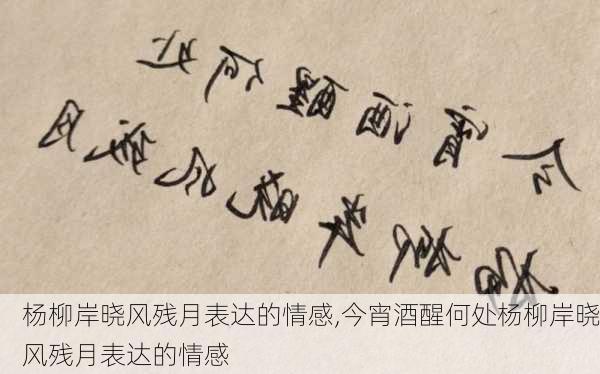 今宵酒醒何处
杨柳岸晓风残月
杨柳岸晓风残月表达的情感,今宵酒醒何处杨柳岸晓
风残月表达的情感